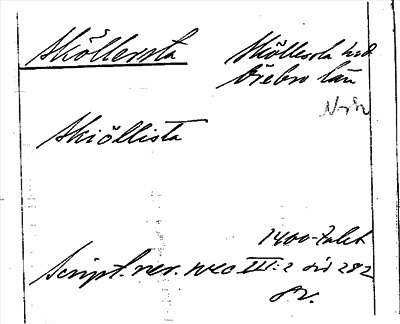 Sköllersta
Sköllersta hrd
Örebro län
Skiöllista
1400-talet
Script. rer. svec III:2 sid 282